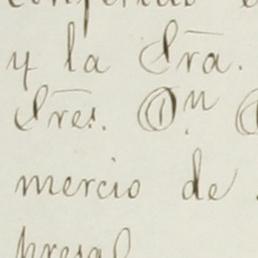 y la Sra.
Sres. D.n
mercio de